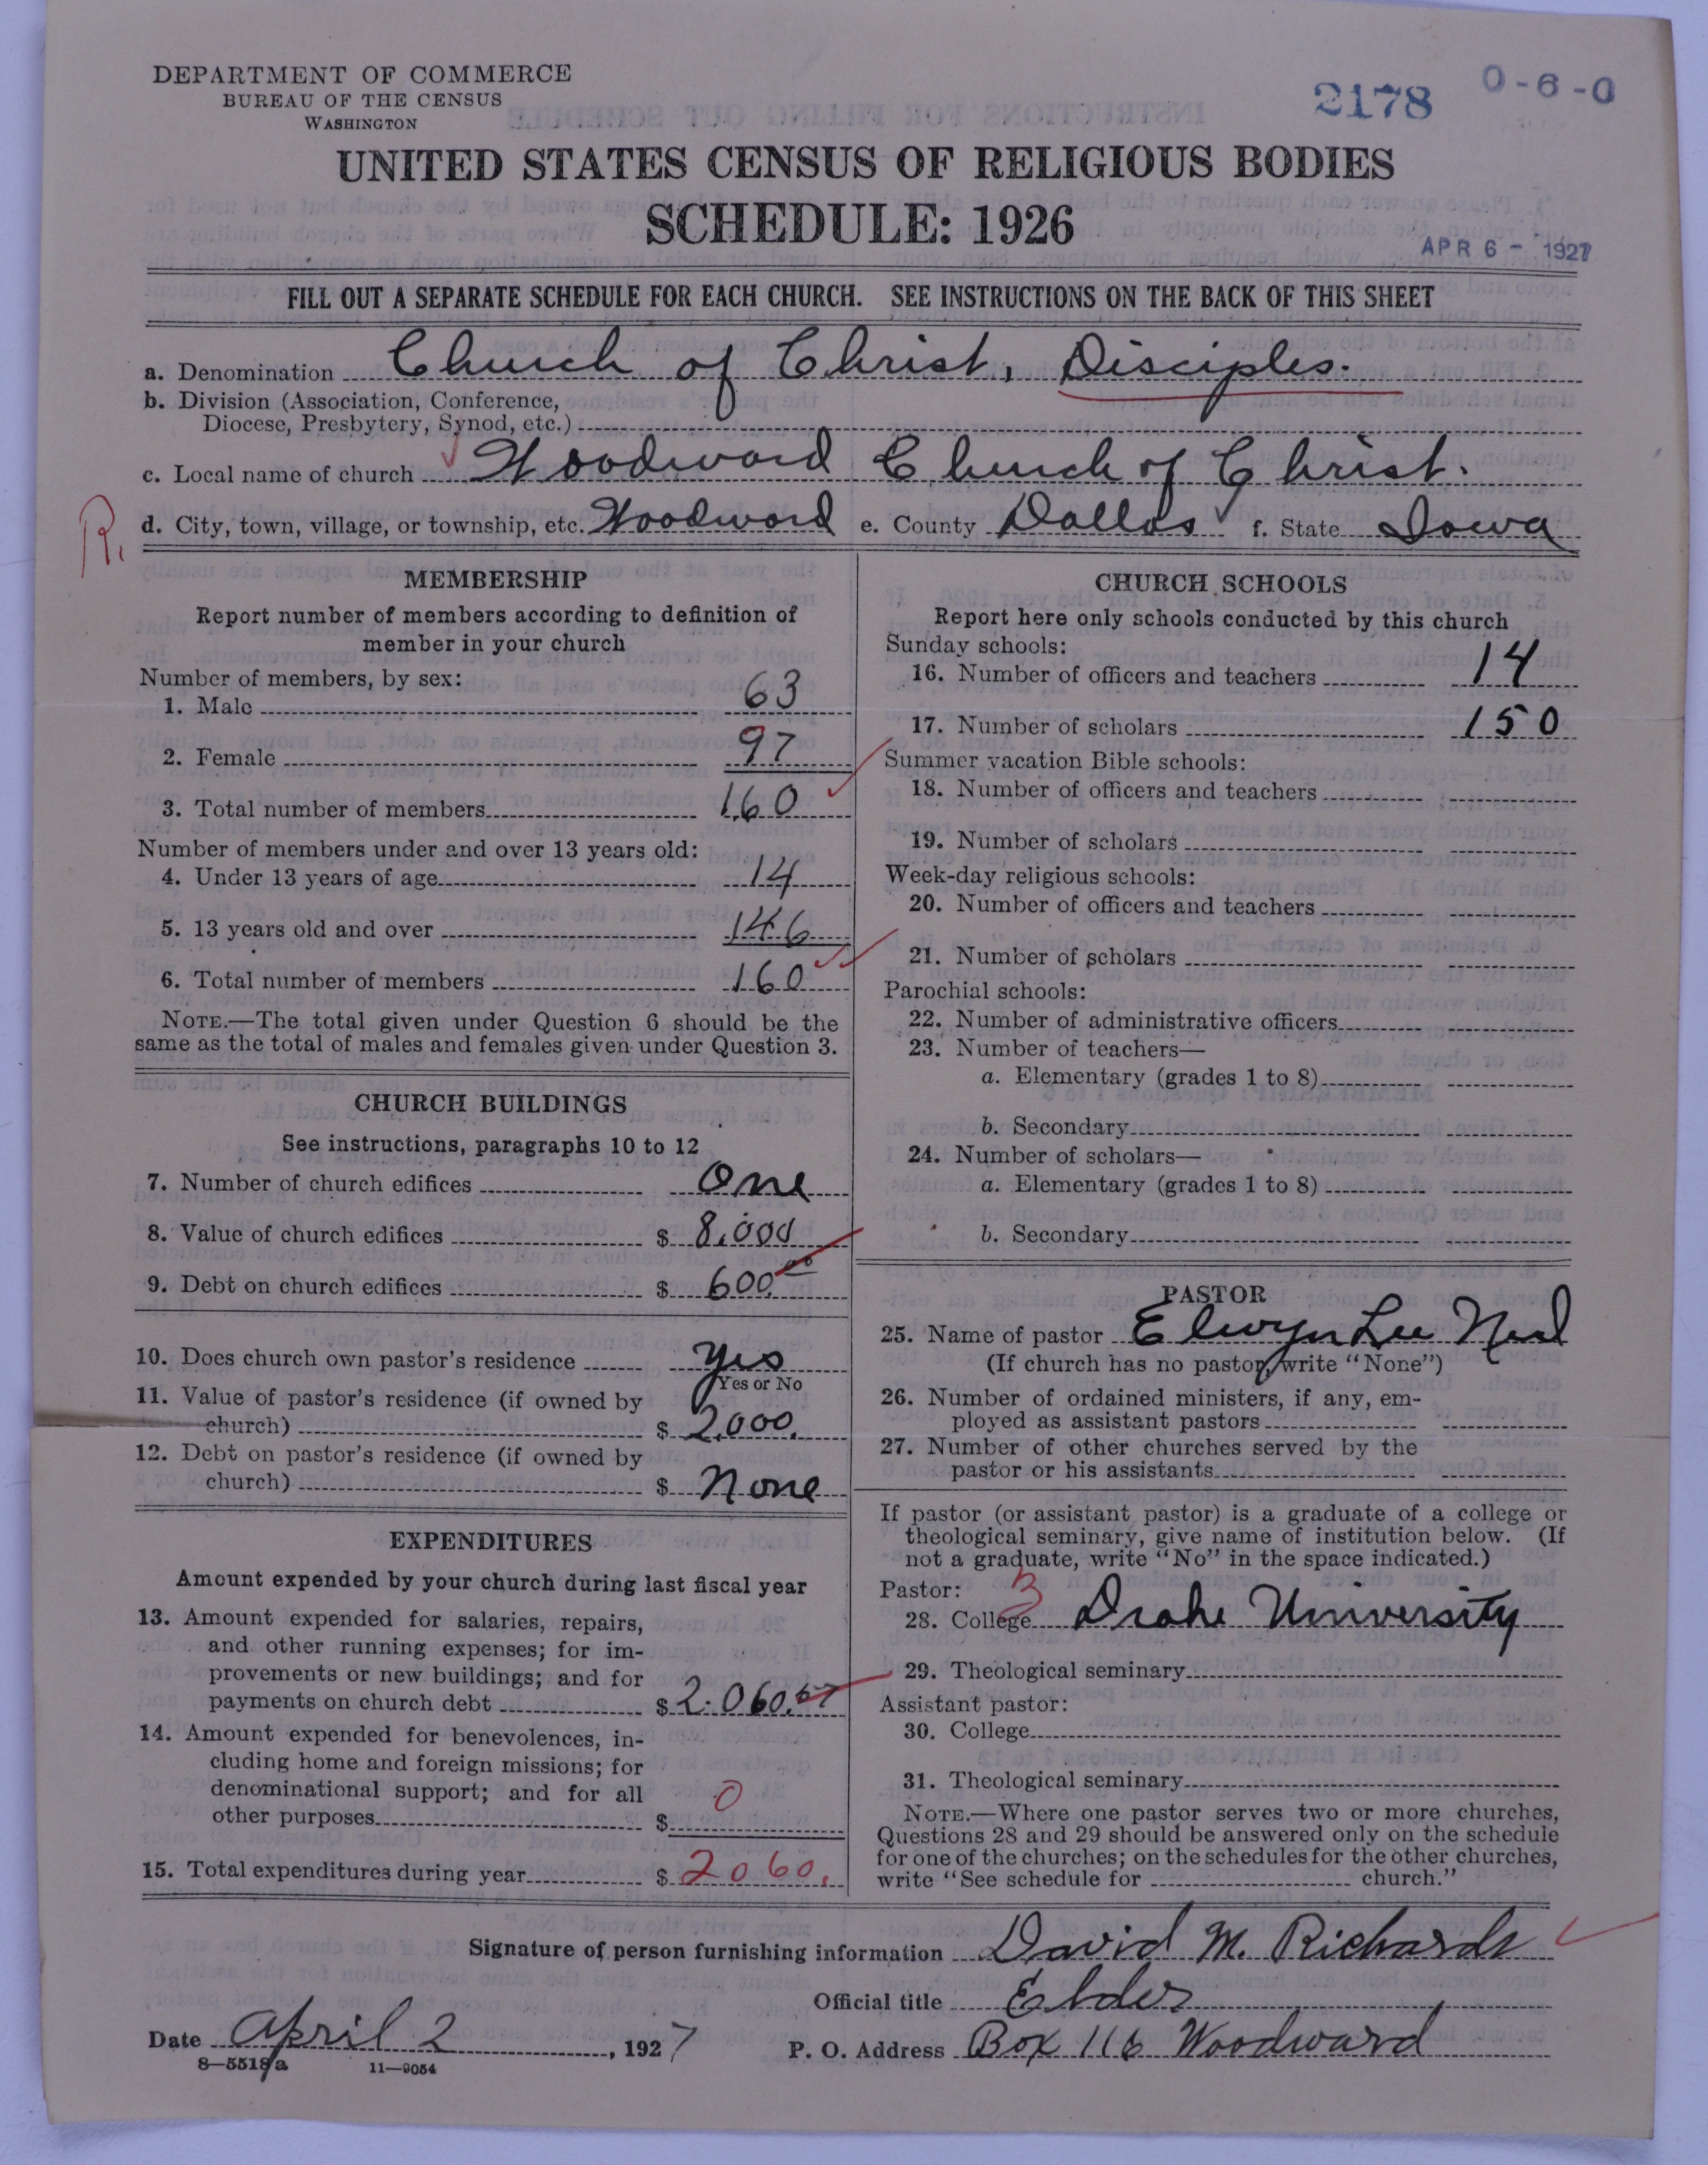 DEPARTMENT OF COMMERCE
BUREAU OF THE CENSUS
WASHINGTON
2178
0-6-0
UNITED STATES CENSUS OF RELIGIOUS BODIES
SCHEDULE: 1926
APR 6 - 1927
FILL OUT A SEPARATE SCHEDULE FOR EACH CHURCH. SEE INSTRUCTIONS ON THE BACK OF THIS SHEET
a. Denomination Church of Christ, Disciples.
b. Division (Association, Conference,
Diocese, Presbytery, Synod, etc.)
c. Local name of church Woodward Church of Christ.
R.
d. City, town, village, or township, etc. Woodward e. County Dallas f. State Iowa
MEMBERSHIP
Report number of members according to definition of
member in your church
Number of members, by sex:
1. Male 63
2. Female 97
3. Total number of members 160
Number of members under and over 13 years old:
4. Under 13 years of age 14
5. 13 years old and over 146
6. Total number of members 160
NOTE.—The total given under Question 6 should be the
same as the total of males and females given under Question 3.
CHURCH BUILDINGS
See instructions, paragraphs 10 to 12
7. Number of church edifices One
8. Value of church edifices $ 8,000
9. Debt on church edifices $ 600.00
10. Does church own pastor's residence yes
Yes or No
11. Value of pastor's residence (if owned by
church) $ 2,000.
12. Debt on pastor's residence (if owned by
church) $ None
EXPENDITURES
Amount expended by your church during last fiscal year
13. Amount expended for salaries, repairs,
and other running expenses; for im-
provements or new buildings; and for
payments on church debt $ 2.060.57
14. Amount expended for benevolences, in-
cluding home and foreign missions; for
denominational support; and for all
other purposes $ 0
15. Total expenditures during year $ 2060.
CHURCH SCHOOLS
Report here only schools conducted by this church
Sunday schools:
16. Number of officers and teachers 14
17. Number of scholars 150
Summer vacation Bible schools:
18. Number of officers and teachers
19. Number of scholars
Week-day religious schools:
20. Number of officers and teachers
21. Number of scholars
Parochial schools:
22. Number of administrative officers
23. Number of teachers—
a. Elementary (grades 1 to 8)
b. Secondary
24. Number of scholars—
a. Elementary (grades 1 to 8)
b. Secondary
PASTOR
25. Name of pastor Elwyn Lee Neal
(If church has no pastor, write "None")
26. Number of ordained ministers, if any, em-
ployed as assistant pastors
27. Number of other churches served by the
pastor or his assistants
If pastor (or assistant pastor) is a graduate of a college or
theological seminary, give name of institution below. (If
not a graduate, write "No" in the space indicated.)
Pastor: 3
28. College Drake University
29. Theological seminary
Assistant pastor:
30. College
31. Theological seminary
NOTE.—Where one pastor serves two or more churches,
Questions 28 and 29 should be answered only on the schedule
for one of the churches; on the schedules for the other churches,
write "See schedule for church."
Signature of person furnishing information David M. Richards
Official title Elder
Date April 2, 1927
P. O. Address Box 116 Woodward
8—5518a
11—9054